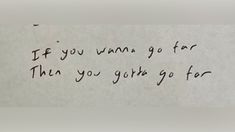 If you wanna go far
Then you gotta go far